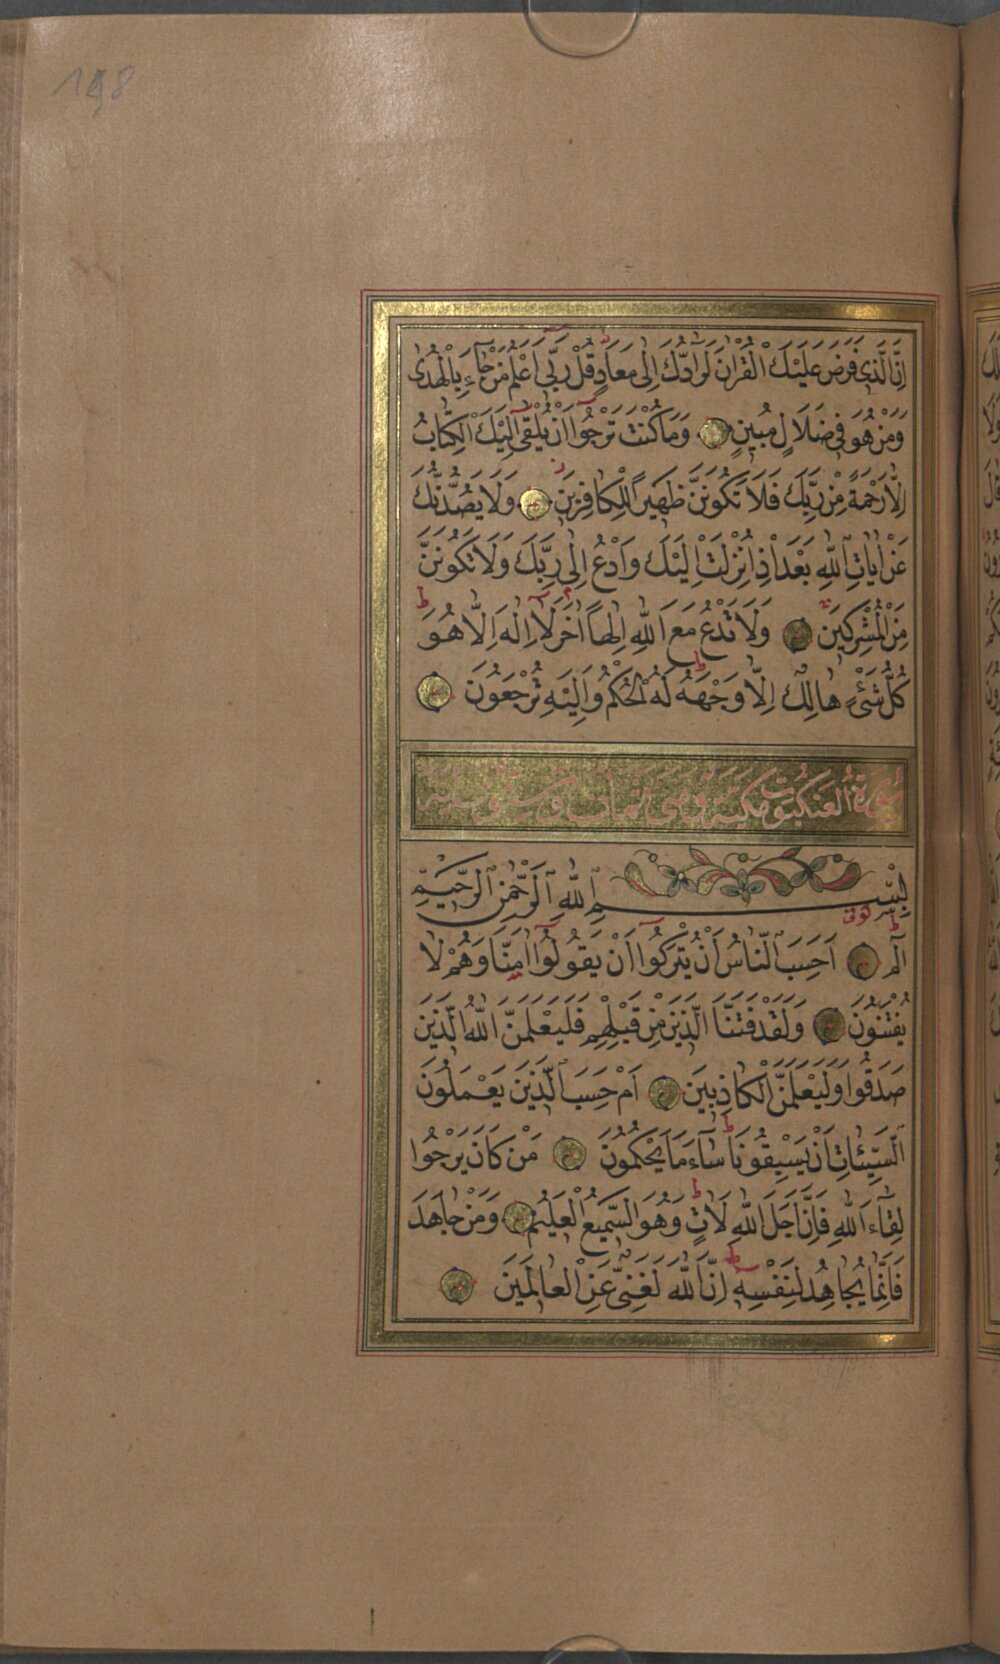 198
اِنَّ الَّذٖى فَرَضَ عَلَيْكَ الْقُرْاٰنَ لَرَٓادُّكَ اِلٰى مَعَادٍ قُلْ رَبّٖٓى اَعْلَمُ مَنْ جَٓاءَ بِالْهُدٰى
وَمَنْ هُوَ فٖى ضَلَالٍ مُبٖينٍ وَمَا كُنْتَ تَرْجُٓوا اَنْ يُلْقٰٓى اِلَيْكَ الْكِتَابُ
اِلَّا رَحْمَةً مِنْ رَبِّكَ فَلَا تَكُونَنَّ ظَهٖيرًا لِلْكَافِرٖينَ وَلَا يَصُدُّنَّكَ
عَنْ اٰيَاتِ اللّٰهِ بَعْدَ اِذْ اُنْزِلَتْ اِلَيْكَ وَادْعُ اِلٰى رَبِّكَ وَلَا تَكُونَنَّ
مِنَ الْمُشْرِكٖينَ وَلَا تَدْعُ مَعَ اللّٰهِ اِلٰهًا اٰخَرَ لَٓا اِلٰهَ اِلَّا هُوَ
كُلُّ شَىْءٍ هَالِكٌ اِلَّا وَجْهَهُ لَهُ الْحُكْمُ وَاِلَيْهِ تُرْجَعُونَ
سُورَةُ الْعَنْكَبُوتِ مَكِّيَّةٌ وَهِىَ
بِسْمِ اللّٰهِ الرَّحْمٰنِ الرَّحٖيمِ
الٓمٓ كوفى اَحَسِبَ النَّاسُ اَنْ يُتْرَكُٓوا اَنْ يَقُولُٓوا اٰمَنَّا وَهُمْ لَا
يُفْتَنُونَ وَلَقَدْ فَتَنَّا الَّذٖينَ مِنْ قَبْلِهِمْ فَلَيَعْلَمَنَّ اللّٰهُ الَّذٖينَ
صَدَقُوا وَلَيَعْلَمَنَّ الْكَاذِبٖينَ اَمْ حَسِبَ الَّذٖينَ يَعْمَلُونَ
السَّيِّئَاتِ اَنْ يَسْبِقُونَا سَٓاءَ مَا يَحْكُمُونَ مَنْ كَانَ يَرْجُوا
لِقَٓاءَ اللّٰهِ فَاِنَّ اَجَلَ اللّٰهِ لَاٰتٍ وَهُوَ السَّمٖيعُ الْعَلٖيمُ وَمَنْ جَاهَدَ
فَاِنَّمَا يُجَاهِدُ لِنَفْسِهٖ اِنَّ اللّٰهَ لَغَنِىٌّ عَنِ الْعَالَمٖينَ